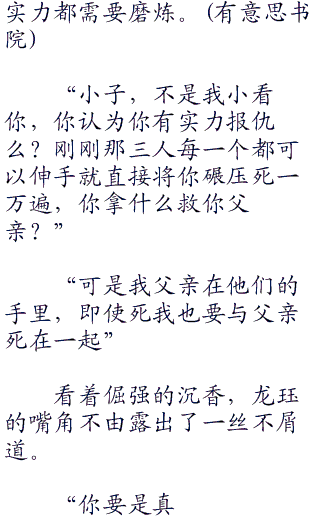 实力都需要磨炼。(有意思书
院)
“小子，不是我小看
你，你认为你有实力报仇
么？刚刚那三人每一个都可
以伸手就直接将你碾压死一
万遍，你拿什么救你父
亲？”
“可是我父亲在他们的
手里，即使死我也要与父亲
死在一起”
看着倔强的沉香，龙珏
的嘴角不由露出了一丝不屑
道。
“你要是真